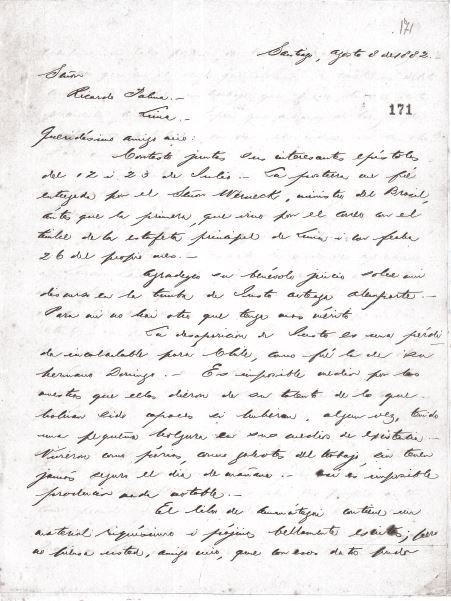 171
Santiago, agosto 8 de 1882.
Señor
Ricardo Palma.—
171
Lima.—
Queridísimo amigo mio:
Contesto juntas sus interesantes epístolas
del 12 i 23 de Julio.— La postrera me fué
entregada por el Señor Werneck, ministro del Brasil,
ántes que la primera, que vino por el correo con el
timbre de la estafeta principal de Lima i con fecha
26 del propio mes.—
Agradezco su benévolo juicio sobre mi
discurso en la tumba de Justo Arteaga Alemparte.—
Para mi no hai otro que tenga mas mérito.
La desaparicion de Justo es una pérdi
da incalculable para Chile, como fué la de su
hermano Domingo.— Es imposible medir por las
muestras que ellos dieron de su talento de lo que
habrian sido capaces si hubieran, alguna vez, tenido
una pequeña holgura en sus medios de existencia.—
Vivieron como parias, como galeotes del trabajo, sin tener
jamás seguro el dia de mañana.— así es imposible
producir nada notable.—
El libro de Amunátegui contiene un
material riquísimo i pájinas bellamente escritas; pero
no piensa usted, amigo mio, que con esos datos